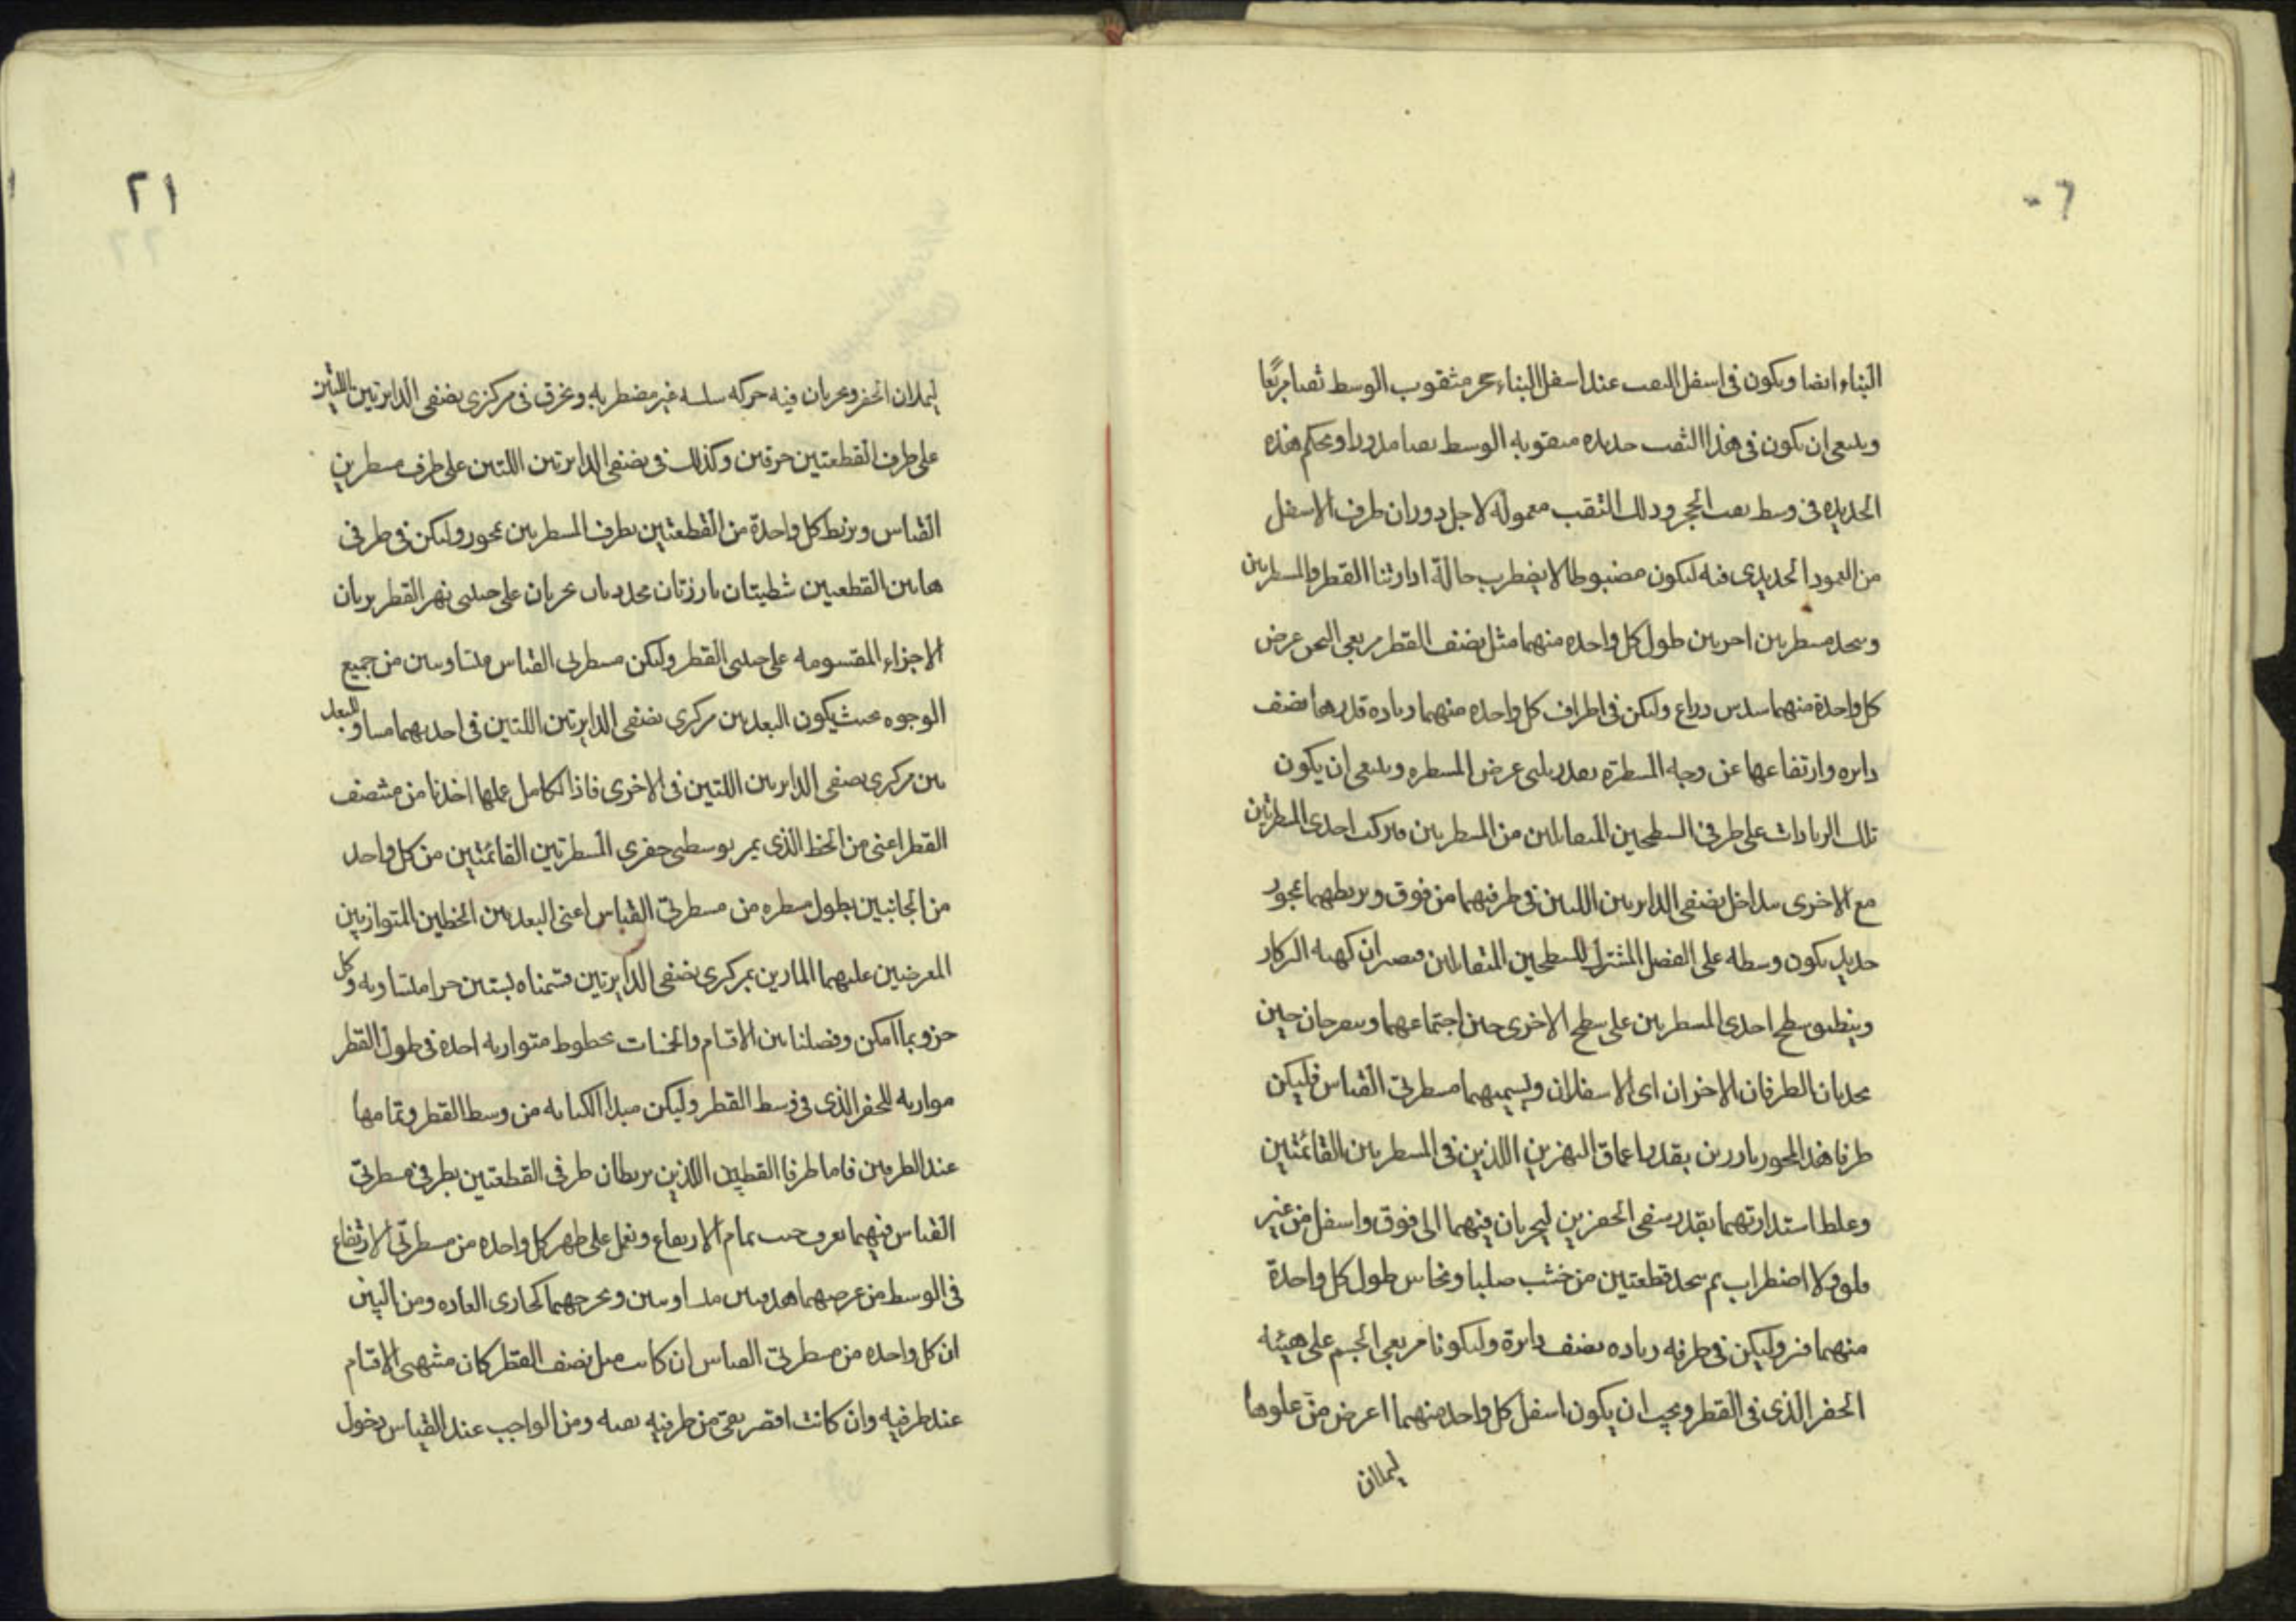 ٢٠
البناء ايضا ويكون فى اسفل النصب عند اسفل البناء حجر مثقوب الوسط ثقبا مربعًا
وينبغى ان يكون فى هذا الثقب حديده مثقوبه الوسط ثقبا مدورا ويحكم هذه
الحديده فى وسط ثقب الحجر وذلك الثقب معموله لاجل دوران طرف الاسفل
من العمود الحديدى فيه ليكون مضبوطا لا يضطرب حالة ادارتنا القطر والمسطرتين
ونتخذ مسطرتين اخريين طول كل واحده منهما مثل نصف القطر مربعى النحن عرض
كل واحدة منهما سدس ذراع وليكن فى اطراف كل واحده منهما زياده قدرها نصف
دايره وارتفاعها عن وجه المسطرة بقدر ثلثى عرض المسطره وينبغى ان يكون
تلك الزيادات على طرفى السطحين المتقابلين من المسطرتين فتركب احدى المسطرتين
مع الاخرى بتداخل نصفى الدايرتين اللتين فى طرفيهما من فوق ويربطهما بمحور
حديد يكون وسطه على الفصل المشترك للسطحين المتقابلين فيصيران كهيئة البركار
وينطبق سطح احدى المسطرتين على سطح الاخرى حين اجتماعهما وينفرجان حين
يجذبان الطرفان الاخران اى الاسفلان ونسميهما مسطرتى القياس فليكن
طرفا هذا المحور بارزين بقدر اعماق النهزين اللذين فى المسطرتين القائمتين
وغلظ استدارتهما بقدر سفى الحفرين ليجريان فيهما الى فوق واسفل من غير
قلق ولا اضطراب ثم نتخذ قطعتين من خشب صلب او نحاس طول كل واحدة
منهما فتر وليكن فى طرفه زياده نصف دايرة وليكونا مربعى الجسم على هيئة
الحفر الذى فى القطر ويجب ان يكون اسفل كل واحد منهما اعرض من علوها
ليملان
٢١
ليملان الحفر ويجريان فيه حركه سلسه غير مضطربه ونخرق فى مركزى نصفى الدايرتين اللتين
على طرف القطعتين خرقين وكذلك فى نصفى الدايرتين اللتين على طرف مسطرتى
القياس ونربط كل واحدة من القطعتين بطرف المسطرتين بمحور وليكن فى طرفى
هاتين القطعتين شظيتان بارزتان محددتان يجريان على جنبى نهر القطر يريان
الاجزاء المقسومه على جنبى القطر وليكن مسطرتى القياس متساويتين من جميع
الوجوه بحيث يكون البعد بين مركزى نصفى الدايرتين اللتين فى احديهما مساو للبعد
بين مركزى نصفى الدايرتين اللتين فى الاخرى فاذا تكامل عملها اخذنا من منتصف
القطر اعنى من الخط الذى يمر بوسطى حفرى المسطرتين القائمتين من كل واحد
من الجانبين بطول مسطره من مسطرتى القياس اعنى البعد بين الخطين المتوازيين
المعرضين عليهما المارين بمركزى نصفى الدايرتين قسمناه بستين جزا متساويه وكل
جزو بما امكن وفصلنا بين الاقسام والخمسات بخطوط متوازيه اخذه فى طول القطر
موازيه للحفر الذى فى وسط القطر وليكن مبدا الكتابه من وسط القطر وتمامها
عند الطرفين فاما طرفا القطبين اللذين يربطان طرفى القطعتين بطرفى مسطرتى
القياس فبهما نعرف جيب تمام الارتفاع ونعمل على ظهر كل واحده من مسطرتى الارتفاع
فى الوسط من عرضهما هدفتين متساويتين ونخرجهما كجارى العاده ومن البين
ان كل واحده من مسطرتى القياس ان كانت مثل نصف القطر كان منتهى الاقسام
عند طرفيه وان كانت اقصر بقى من طرفيه بقيه ومن الواجب عند القياس تحول